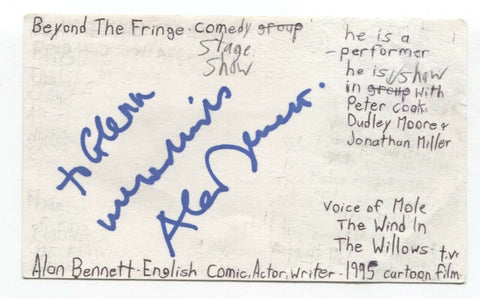 Beyond The Fringe - comedy group
Stage
Show
he is a
- performer
he is show
in group with
Peter Cook
Dudley Moore &
Jonathan Miller
to Glenn
Alan Bennett.
Voice of Mole
The Wind In
The Willows t.v.
Alan Bennett - English Comic, Actor, writer - 1995 cartoon film